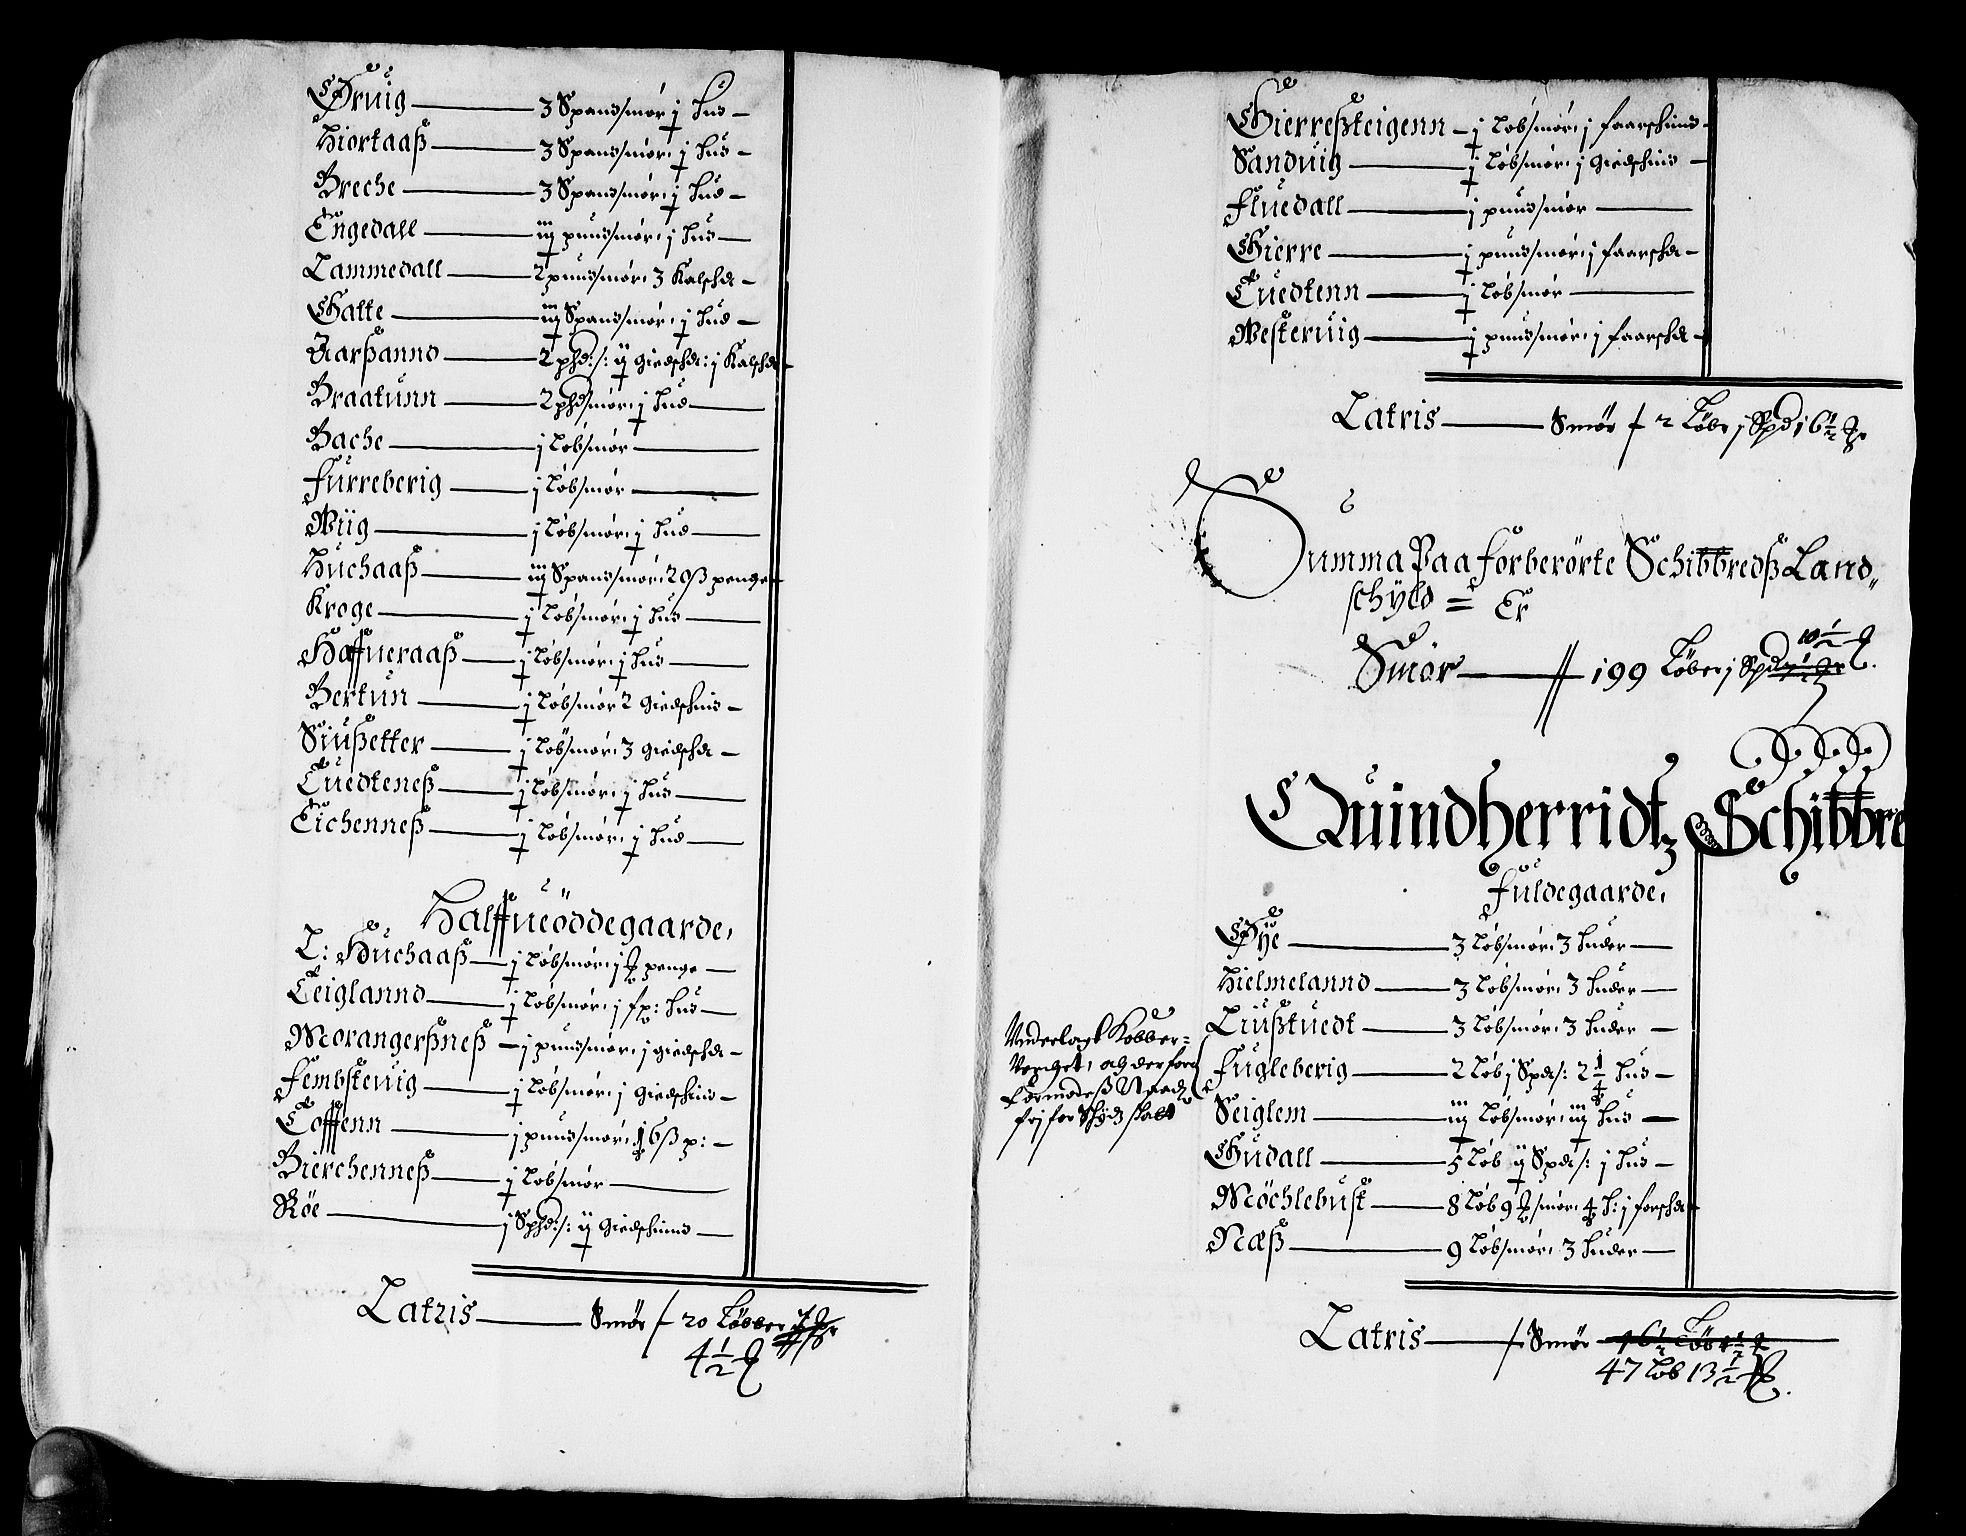 Øruig — 3 Spandsmør j hud —
Hiortaaß — 3 Spandsmør, j hud —
Breche — 3 Spandsmør, j hud —
Engedall — iij pundsmør, j hud —
Lammedall — 2 pundsmør, 3 Kalschd —
Gatte — iij Spandsmør, j hud —
Aarßannd — 2 phd:/: ij giedschd: j Kalschd —
Braatunn — 2 phdsmør, j hud —
Bache — j løbsmør —
Furreberig — j løbsmør —
Wiig — j løbsmør, j hud —
Huchaaß — iij Spandsmør, 20 ß penge —
Kroge — j løbsmør, j hud —
Haffueraaß — j løbsmør, j hud —
Bertun — j løbsmør 2 giedschind —
Siußetter — j løbsmør, 3 giedschd —
Tuedteneß — j løbsmør, j hud —
Eichenneß — j løbsmør, j hud —
Halffueøddegaarde,
L: Huchaaß — j løbsmør, j penge —
Teiglannd — j løbsmør, j hud —
Morangerßneß — j pundsmør, j giedschd —
Fembsteuig — j løbsmør, j giedschind —
Toffenn — j pundsmør, 16 ß p: —
Bierchenneß — j løbsmør —
Røe — j Sphd:/: ij giedschind —
Latris — Smør / 20 Løbber
4 1/2
Gierreßteigenn — j løbsmør, j faarschind —
Sanduig — j løbsmør, j giedschind —
Fluedall — j pundsmør —
Gierre — j pundsmør, j faarschd —
Tuedtenn — j løbsmør —
Westeruig — j pundsmør, j faarschd —
Latris — Smør / 2 Løbe j Spd, 6 1/2
Summa Paa forberørte Schibbredß Land,,
schyld = Er
10 1/2
Smør — 199 Løber j Spd
Quindherridtz Schibbre
Fuldegaarde,
Øye — 3 løbsmør, 3 huder —
Hielmelannd — 3 løbsmør, 3 huder —
Liußtuedt — 3 løbsmør, 3 huder —
Underlagt Kobber=
Verchet, och derfore
Formodeß
fri for
Fugleberig — 2 løb j Spd/: 2 1/4 hud —
Seiglem — iij løbsmør, iij hud —
Gudall — 5 løb ij Spd/: j hud —
Møchlebust — 8 løb 9 smør, 4 h: j forschd —
Næß — 9 løbsmør, 3 huder —
Latris — / Smør
47 løb 13 1/2